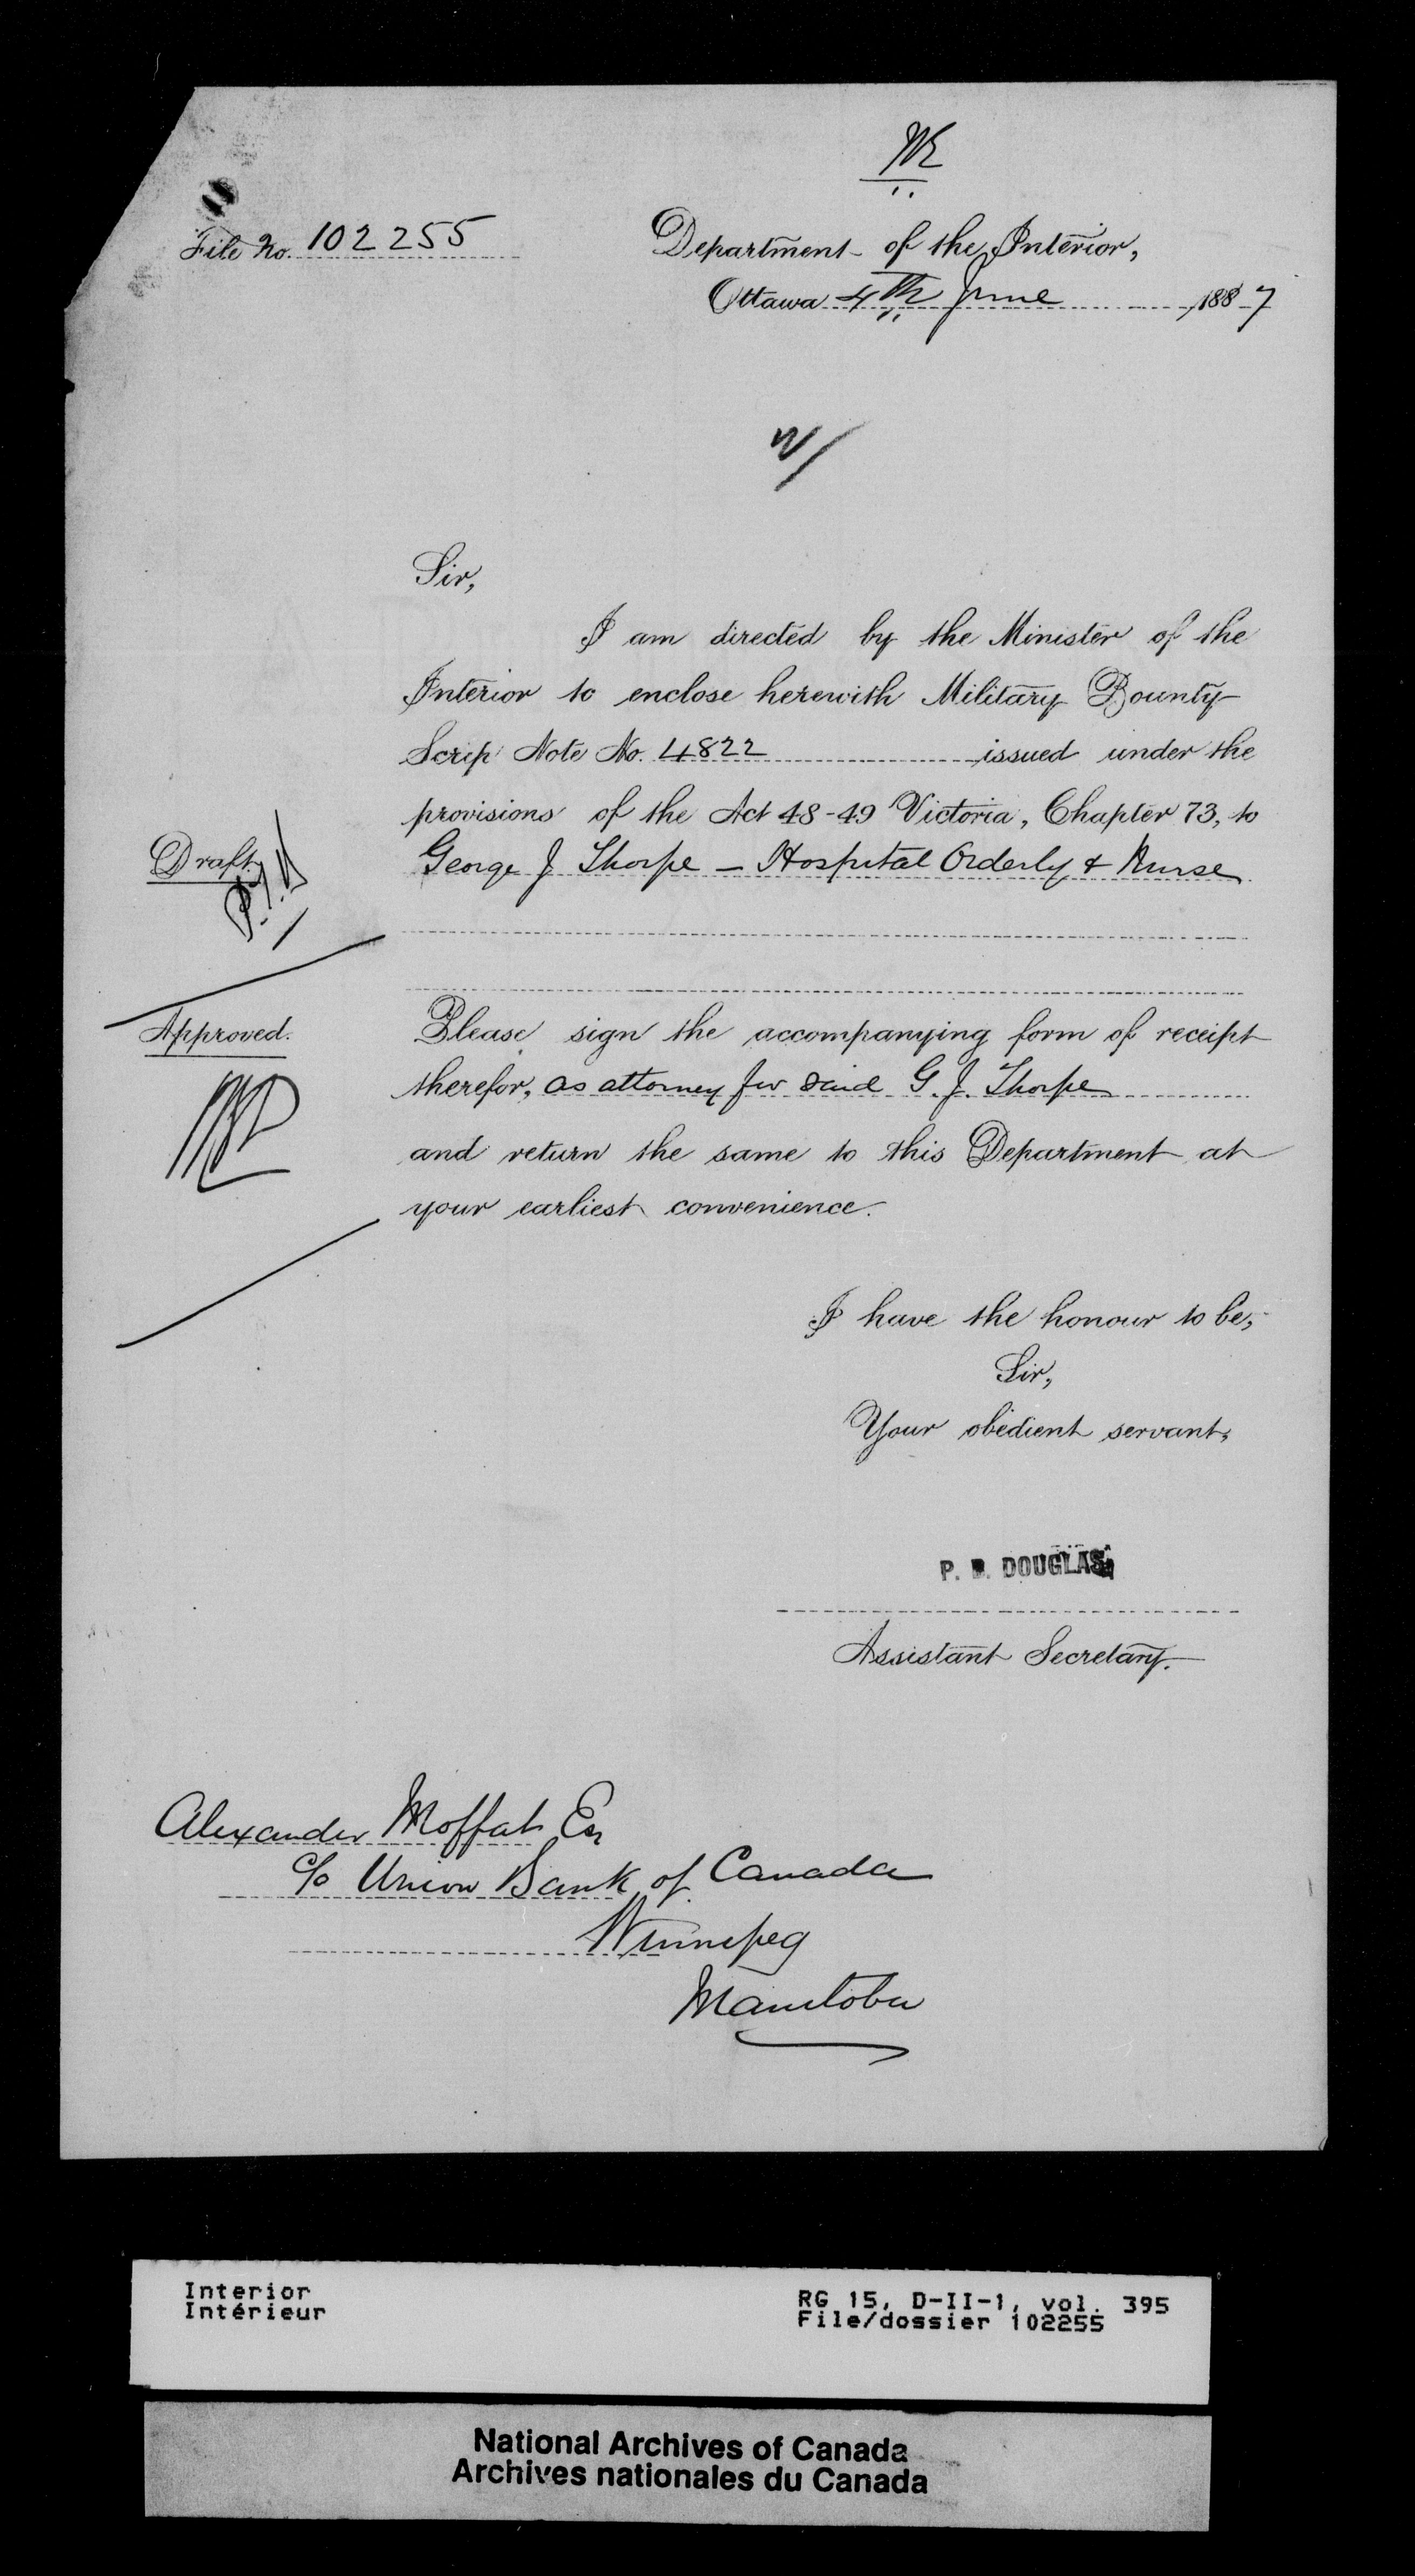 File No. 102255
Department of the Interior,
Ottawa 4th June 1887
Sir,
I am directed by the Minister of the
Interior to enclose herewith Military Bounty
Scrip Note No. 4822 issued under the
provisions of the Act 48-49 Victoria, Chapter 73, to
Draft
George J Thorpe — Hospital Orderly & Nurse
Approved.
Please sign the accompanying form of receipt
therefor, as attorney for said G. J. Thorpe
and return the same to this Department at
your earliest convenience.
I have the honour to be,
Sir,
Your obedient servant,
P. B. DOUGLAS,
Assistant Secretary.
Alexander Moffat Esq
c/o Union Bank of Canada
Winnipeg
Manitoba
Interior
Intérieur
RG 15, D-II-1, vol. 395
File/dossier 102255
National Archives of Canada
Archives nationales du Canada